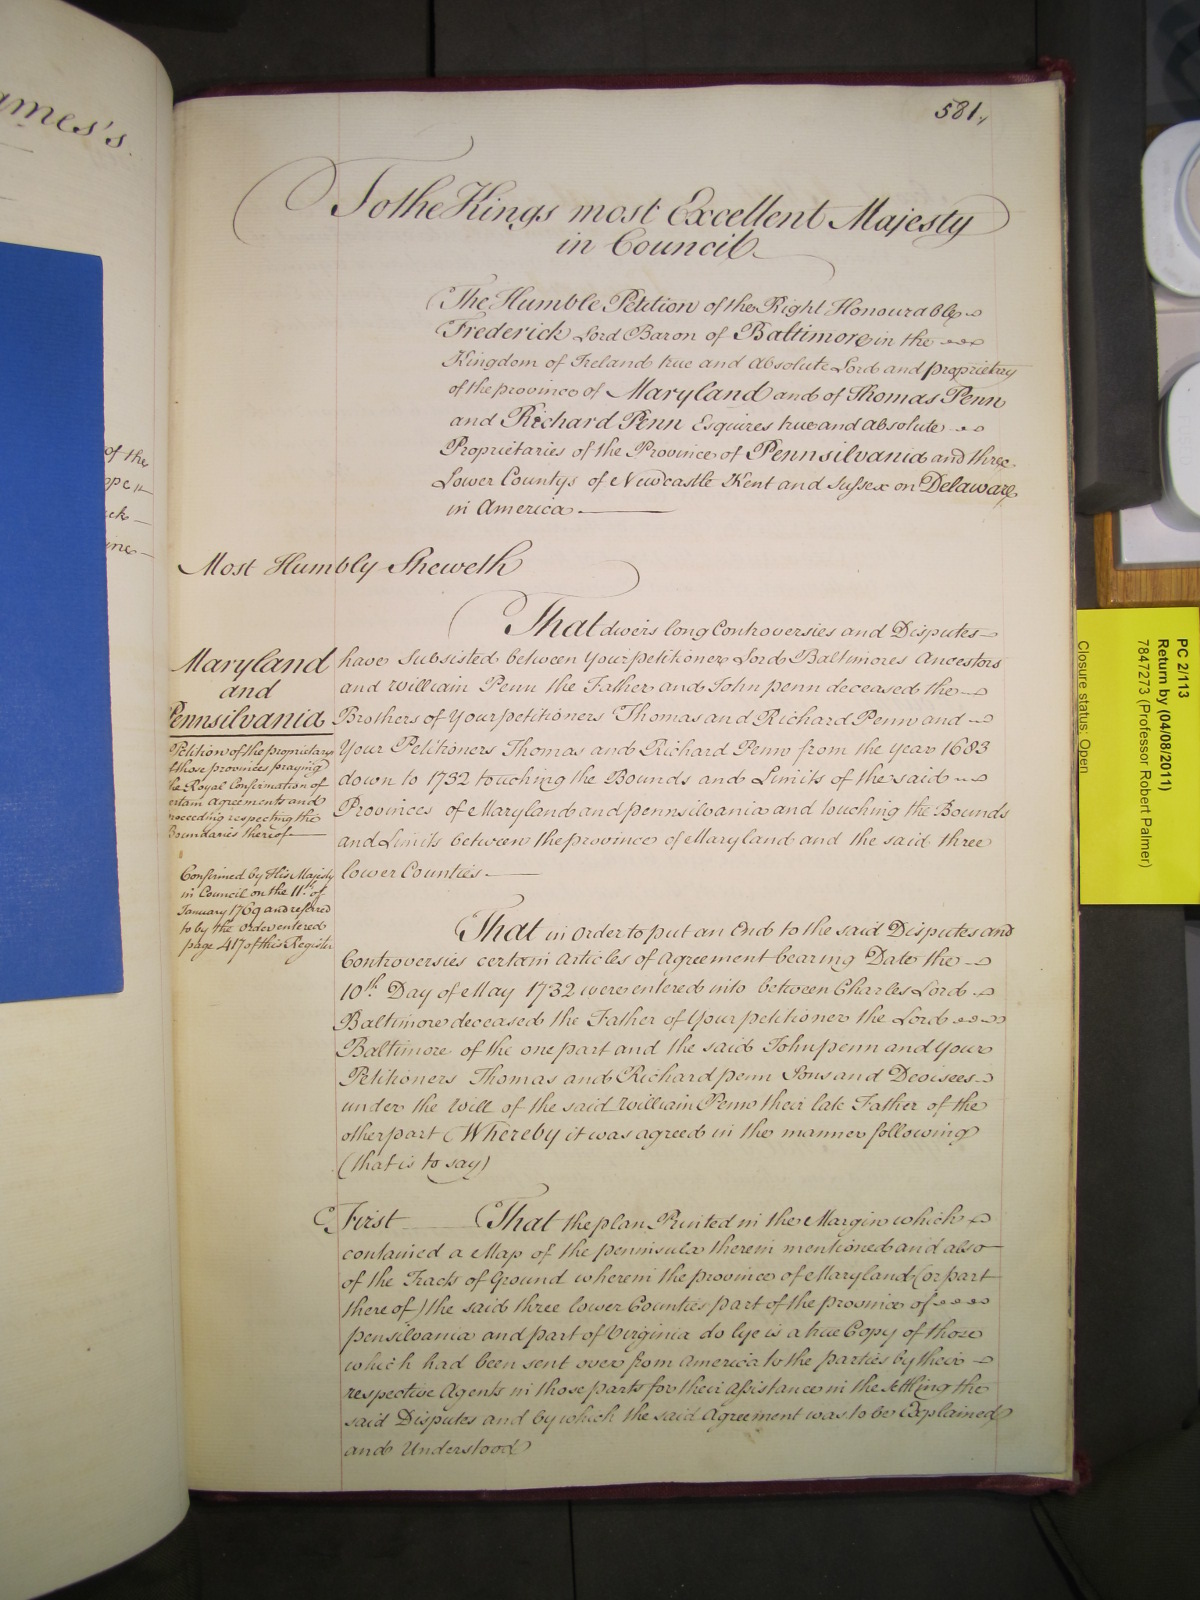 ames's.
of the
ck
581.
To the Kings most Excellent Majesty
in Council
The Humble Petition of the Right Honourable
Frederick Lord Baron of Baltimore in the
Kingdom of Ireland true and absolute Lord and proprietary
of the province of Maryland and of Thomas Penn
and Richard Penn Esquires true and absolute
Proprietaries of the Province of Pennsilvania and three
Lower Countys of Newcastle Kent and Sussex on Delaware
in America
Most Humbly Sheweth
That divers long Controversies and Disputes
have Subsisted between Your petitioner Lord Baltimores Ancestors
and William Penn the Father and John penn deceased the
Brothers of Your petitioners Thomas and Richard Penn and
Your Petitioners Thomas and Richard Penn from the Year 1683
down to 1732 touching the Bounds and Limits of the said
Provinces of Maryland and pennsilvania and touching the Bounds
and Limits between the province of Maryland and the said three
lower Counties
Maryland
and
Pennsilvania
Petition of the proprietarys
of those provinces praying
the Royal Confirmation of
certain agreements and
proceeding respecting the
Boundaries thereof
Confirmed by His Majesty
in Council on the 11th of
January 1769 and referred
to by the order entered
page 417 of this Register
That in order to put an End to the said Disputes and
Controversies certain Articles of Agreement bearing Date the
10th Day of May 1732 were entered into between Charles Lord
Baltimore deceased the Father of Your petitioner the Lord
Baltimore of the one part and the said John penn and Your
Petitioners Thomas and Richard penn Sons and Devisees
under the Will of the said William Penn their late Father of the
other part Whereby it was agreed in the manner following
(that is to say)
First That the plan Printed in the Margin which
contained a Map of the peninsula therein mentioned and also
of the Tracts of Ground wherein the province of Maryland (or part
thereof) the said three lower Counties part of the province of
pensilvania and part of Virginia do lye is a true Copy of those
which had been sent over from America to the parties by their
respective Agents in those parts for their assistance in the settling the
said Disputes and by which the said Agreement was to be Explained
and Understood
PC 2/113
Return by (04/08/2011)
7847273 (Professor Robert Palmer)
Closure status: Open